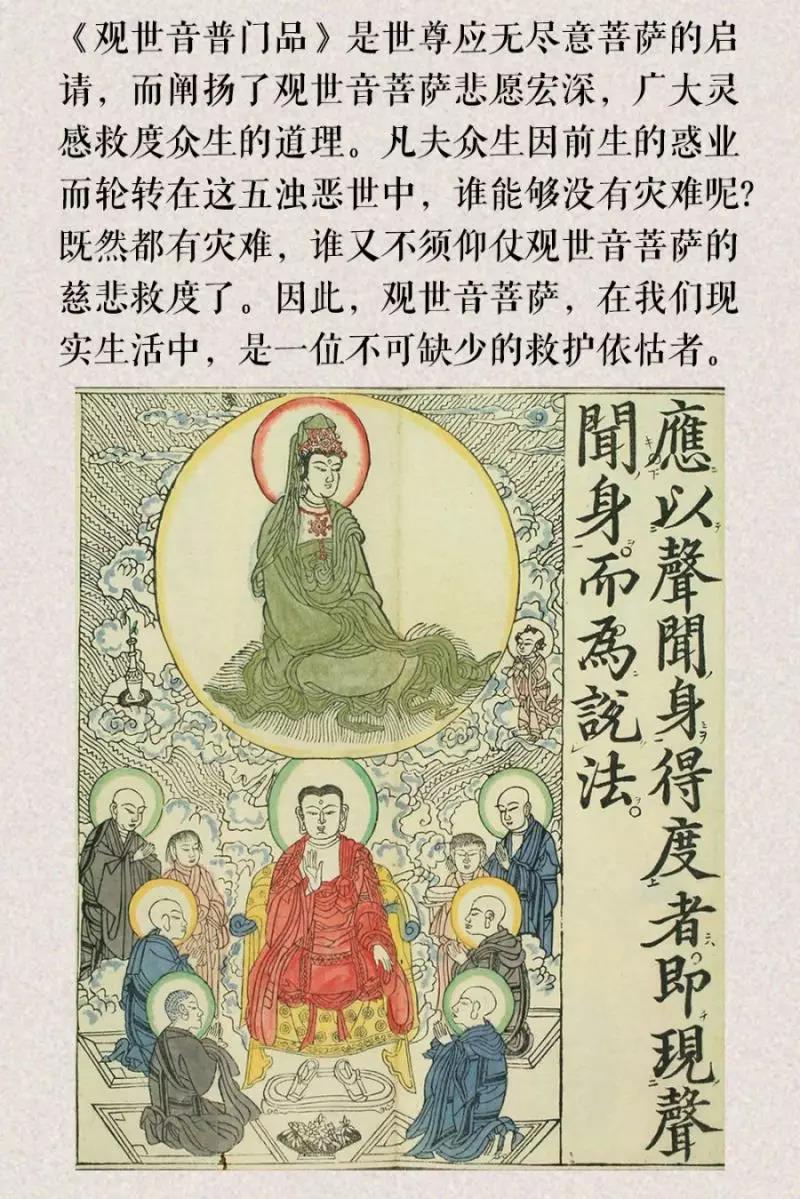 《观世音普门品》是世尊应无尽意菩萨的启
请，而阐扬了观世音菩萨悲愿宏深，广大灵
感救度众生的道理。凡夫众生因前生的惑业
而轮转在这五浊恶世中，谁能够没有灾难呢?
既然都有灾难，谁又不须仰仗观世音菩萨的
慈悲救度了。因此，观世音菩萨，在我们现
实生活中，是一位不可缺少的救护依怙者。
應以聲聞身得度者即現聲
聞身而為說法